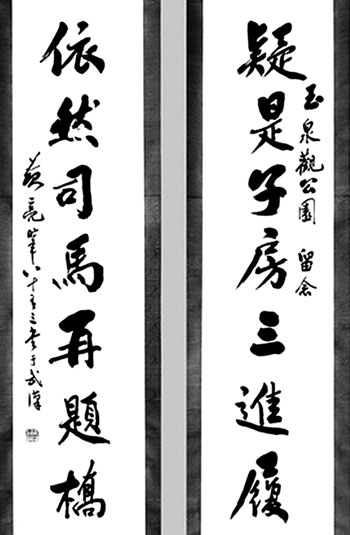 疑是子房三進履
玉泉觀公園 留念
依然司馬再題橋
黄亮時年八十有三書于武漢